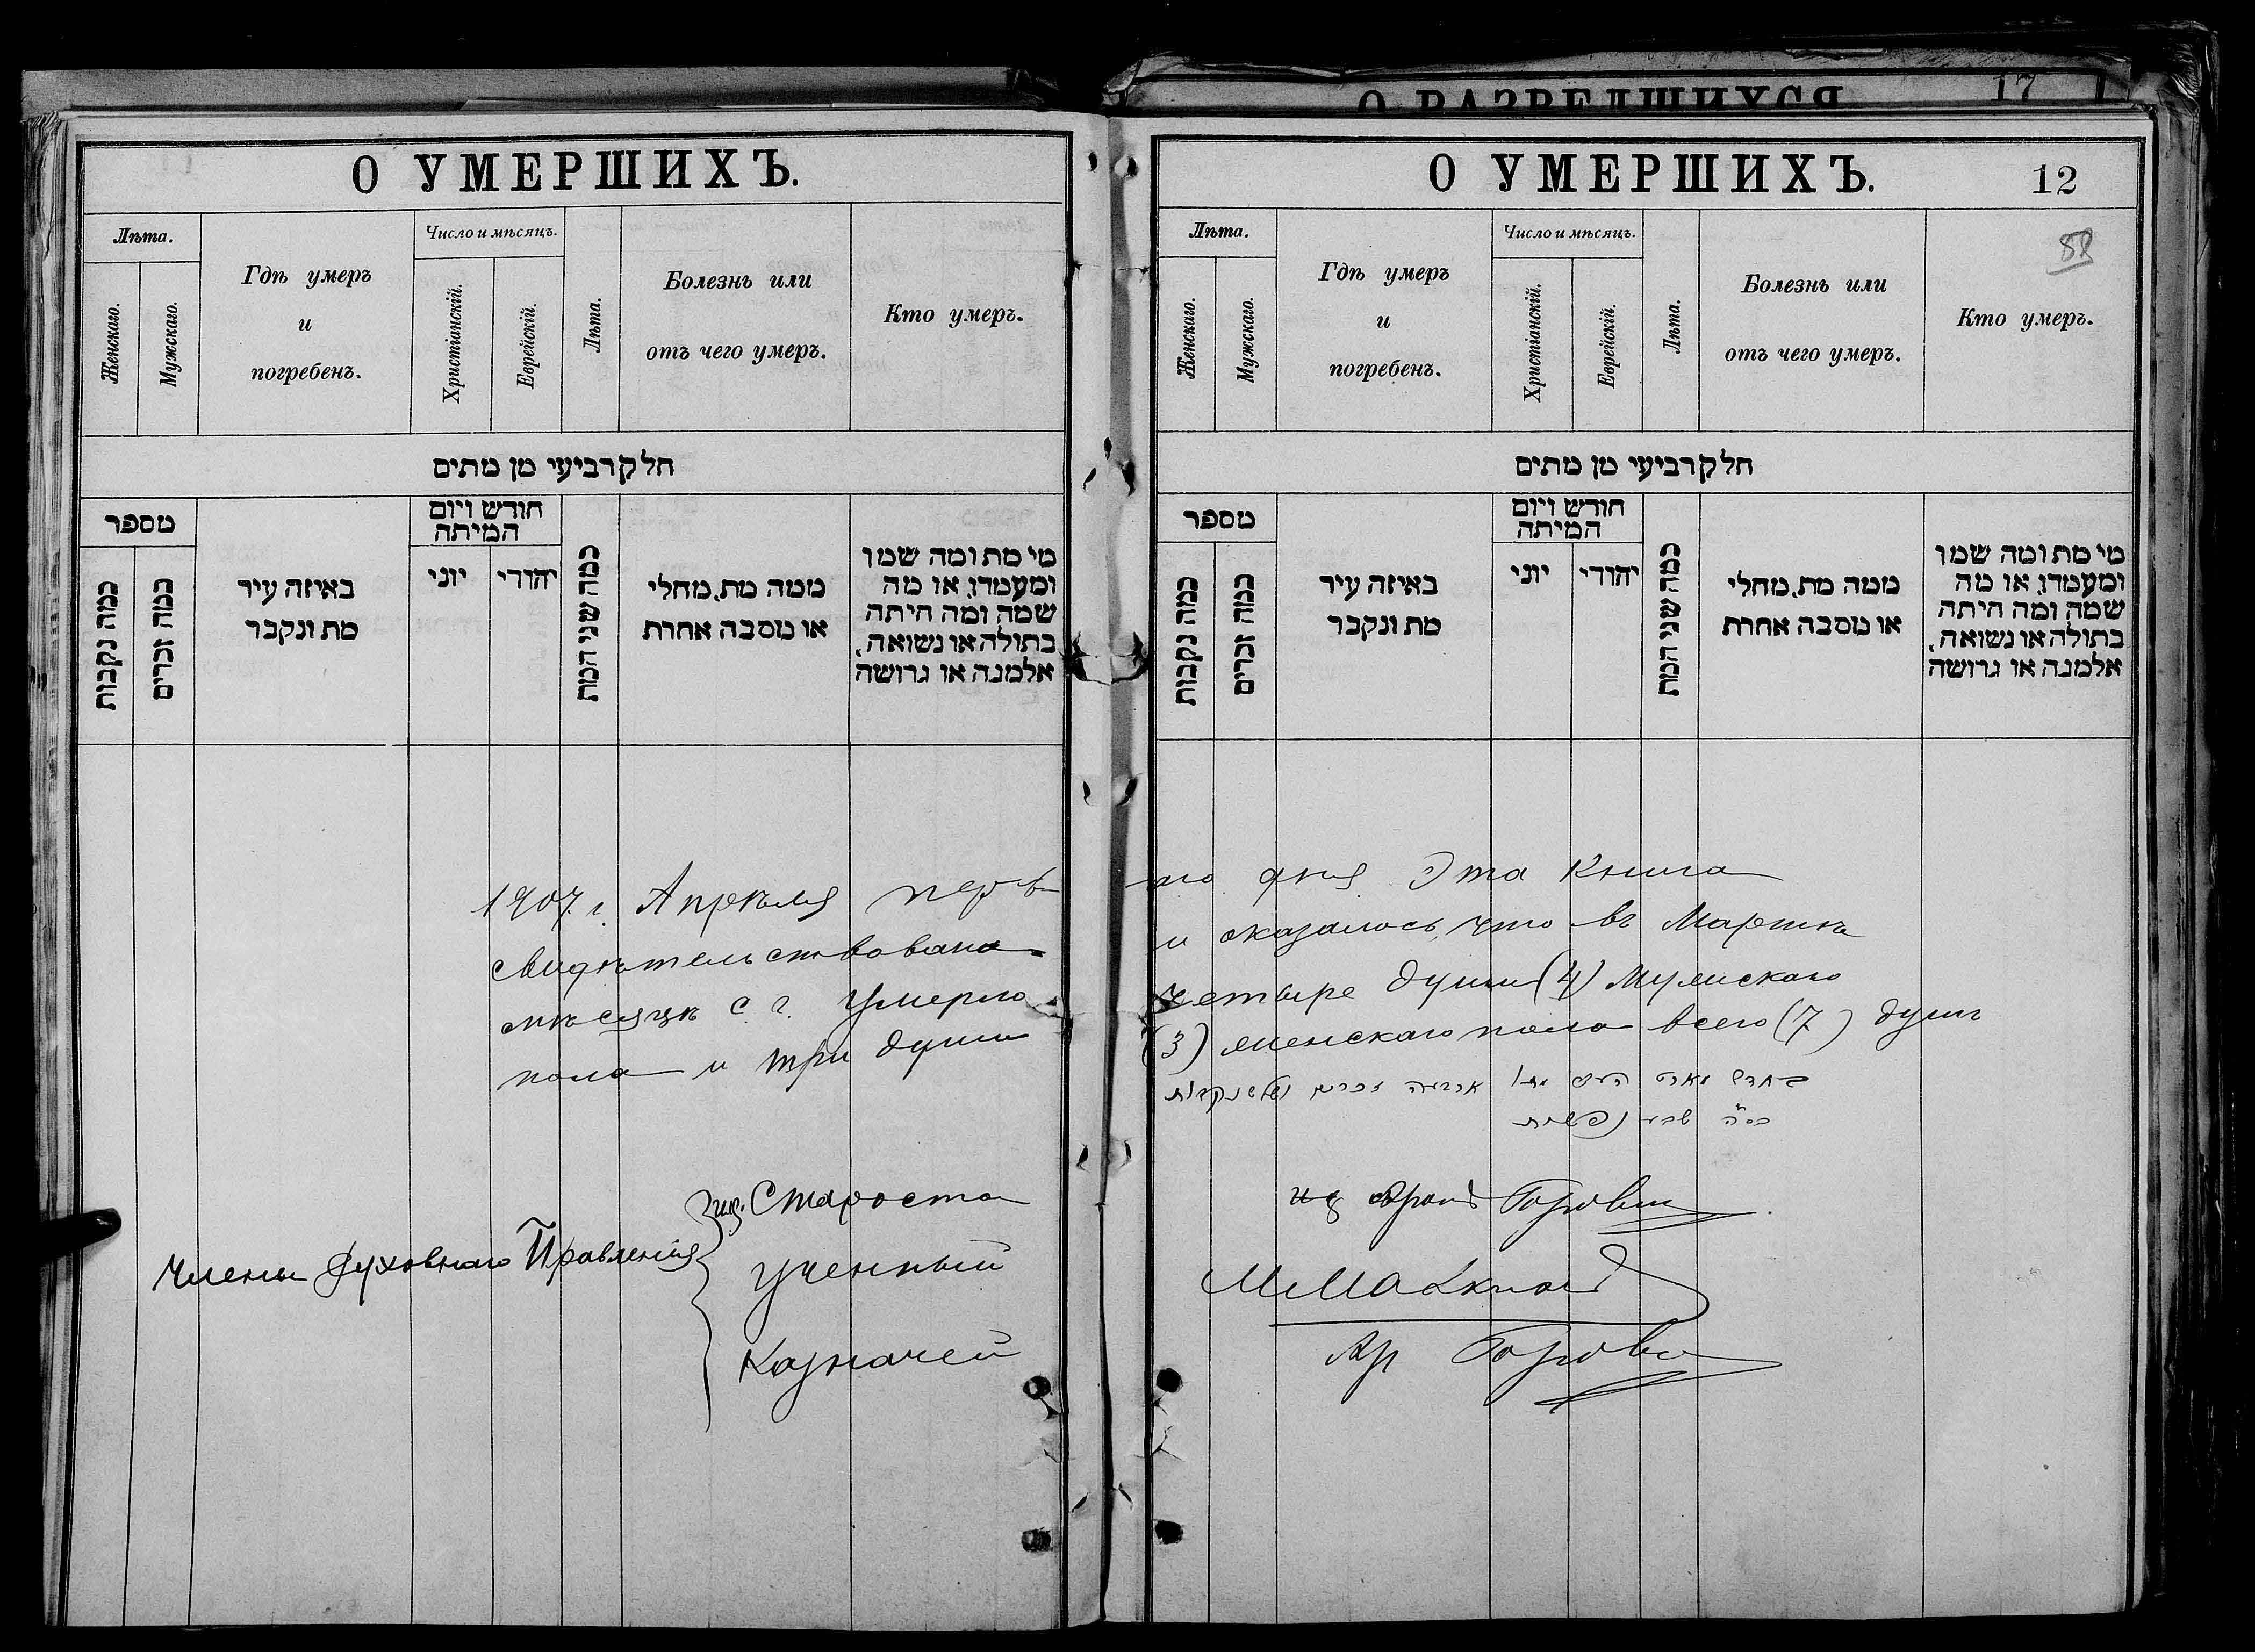 О РАЗВЕДШИХСЯ
17
О УМЕРШИХЪ.
Лѣта.
Женскаго.
Мужскаго.
Гдѣ умеръ
и
погребенъ.
Число и мѣсяцъ.
Христіанскій.
Еврейскій.
Лѣта.
Болезнь или
отъ чего умеръ.
Кто умеръ.
חלק רביעי מן מתים
מספר
כמה נקבות
כמה זכרים
באיזה עיר
מת ונקבר
חודש ויום
המיתה
יוני
יהודי
כמה שני המת
ממה מת, מחלי
או מסבה אחרת
מי מת ומה שמו
ומעמדו, או מה
שמה ומה היתה
בתולה או נשואה,
אלמנה או גרושה
1907 г. Апрѣля перв
свидѣтельствована
мѣсяцѣ с. г. умерло
пола и три души
Староста
Члены Духовнаго Правленія
Ученный
Казначей
О УМЕРШИХЪ.
12
Лѣта.
Женскаго.
Мужскаго.
Гдѣ умеръ
и
погребенъ.
Число и мѣсяцъ.
Христіанскій.
Еврейскій.
Лѣта.
Болезнь или
отъ чего умеръ.
Кто умеръ.
חלק רביעי מן מתים
מספר
כמה נקבות
כמה זכרים
באיזה עיר
מת ונקבר
חודש ויום
המיתה
יוני
יהודי
כמה שני המת
ממה מת, מחלי
או מסבה אחרת
מי מת ומה שמו
ומעמדו, או מה
שמה ומה היתה
בתולה או נשואה,
אלמנה או גרושה
аго дня Эта Книга
и оказалось, что въ Мартѣ
четыре души (4) мужскаго
(3) женскаго пола всего (7) душъ
בחדש מארט מתו ארבעה זכרים ושלש נקבות
ס״ה שבע נפשות